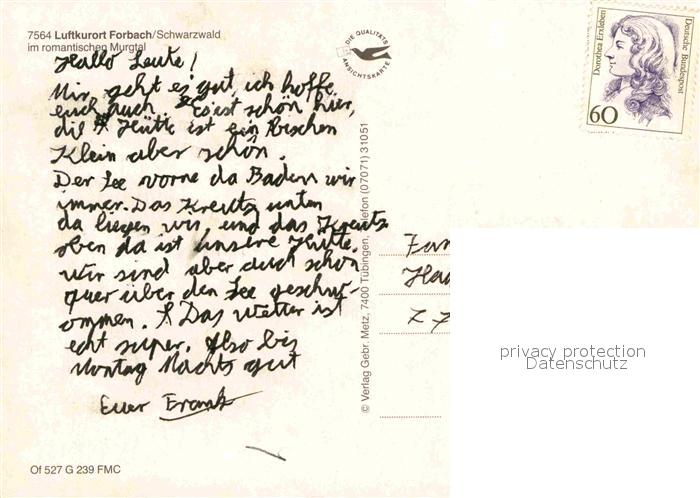 7564 Luftkurort Forbach/Schwarzwald
im romantischen Murgtal
DIE QUALITÄTS
ANSICHTSKARTE
Dorothea Erxleben
Deutsche Bundespost
60
Hallo Leute!
Mir geht es gut, ich hoffe
euch auch. Es ist schön hier,
die Hütte ist ein Bischen
Klein aber schön.
Der See vorne da Baden wir
immer. Das Kreutz unten
da liegen wir, und das Kreutz
oben da ist unsere Hütte.
Wir sind aber auch schon
quer über den See geschw-
ommen. Das Wetter ist
echt super. Also bis
Montag Machts gut
Euer Frank
© Verlag Gebr. Metz, 7400 Tübingen, Telefon (07071) 31051
Fam
Hau
77
privacy protection
Datenschutz
Of 527 G 239 FMC